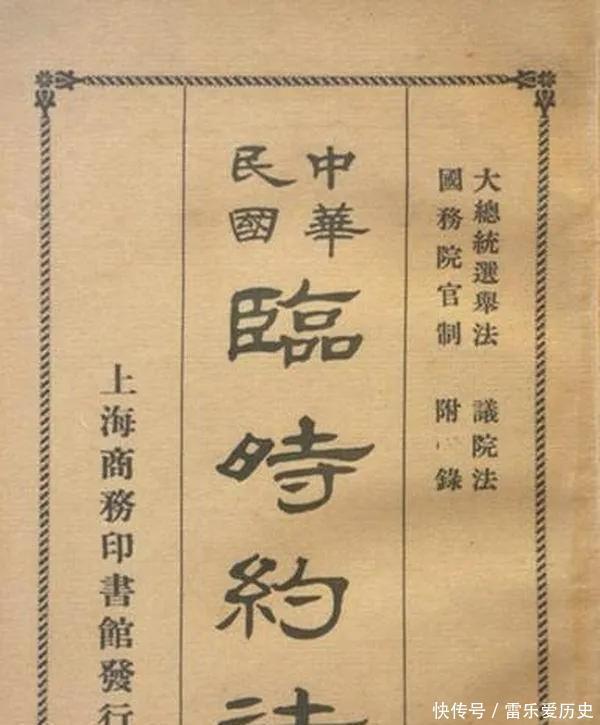 大總統選舉法 議院法
國務院官制 附錄
中華
民國
臨時約法
上海商務印書館發行
快传号/雷乐爱历史